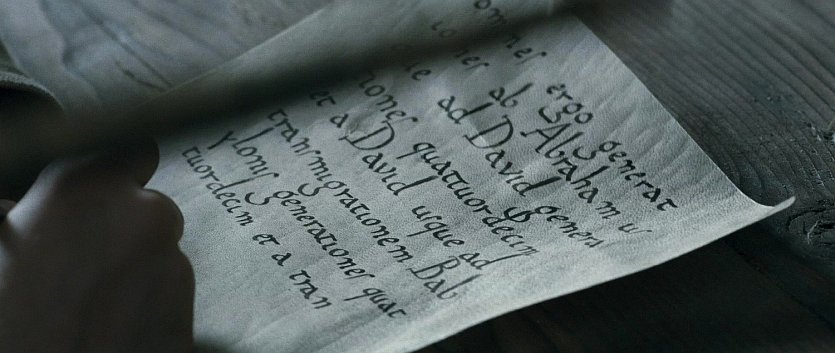 omneſ ergo generat
ioneſ ab Abraham uſ
que ad David genera
tioneſ quattuordecim
et a David uſque ad
tranſmigrationem Bab
yloniſ generationeſ quat
tuordecim et a tran